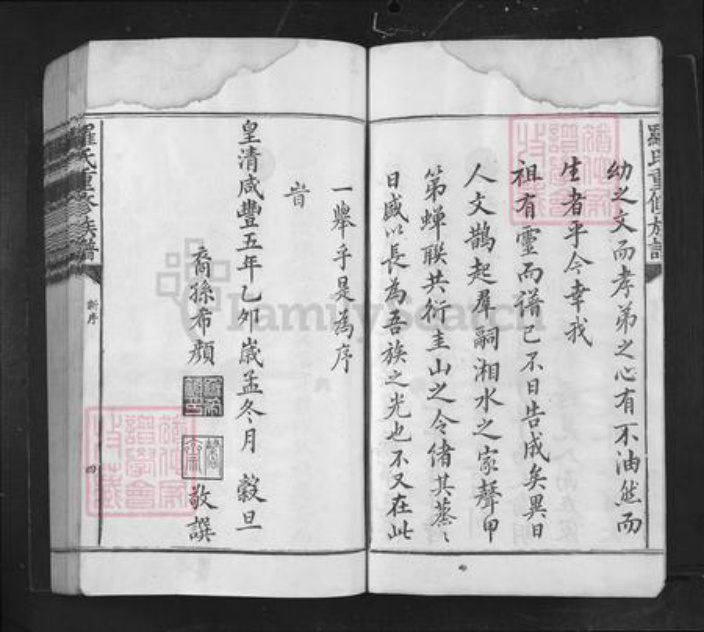 羅氏重修族譜
幼之文而孝弟之心有不油然而
生者乎今幸我
祖有靈而譜已不日告成矣異日
人文鵲起羣嗣湘水之家聲甲
第蟬聯共衍圭山之令緒其蒸〻
日盛以長為吾族之光也不又在此
一舉乎是為序
旹
皇清咸豐五年乙卯歲孟冬月 穀旦
裔孫希顏 敬譔
羅氏重修族譜
新序
四
FamilySearch